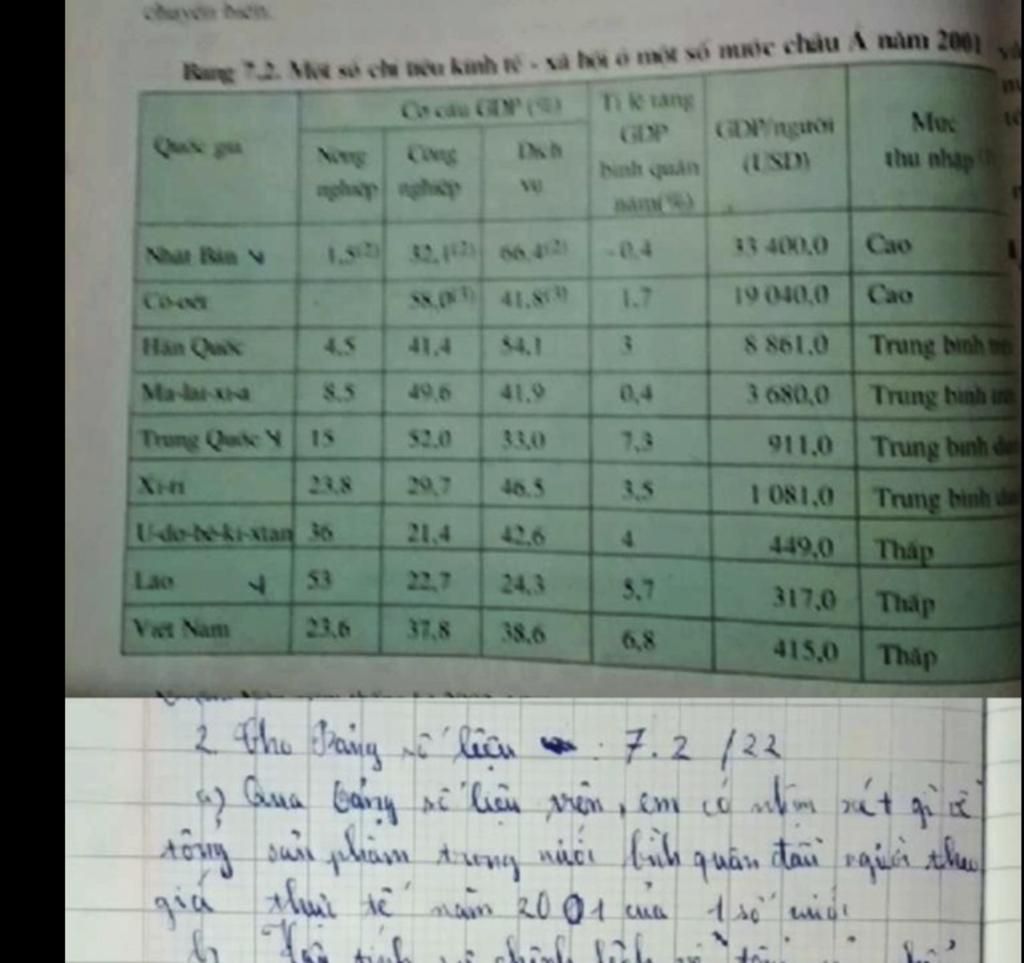 chuyển biến.
Bảng 7.2. Một số chỉ tiêu kinh tế - xã hội ở một số nước châu Á năm 2001
Quốc gia Cơ cấu GDP (%) Tỉ lệ tăng GDP bình quân năm(%) GDP/người (USD) Mức thu nhập
Nông nghiệp Công nghiệp Dịch vụ
Nhật Bản 1,5(2) 32,1(2) 66,4(2) - 0,4 33 400,0 Cao
Cô-oét 58,0(3) 41,8(3) 1,7 19 040,0 Cao
Hàn Quốc 4,5 41,4 54,1 3 8 861,0 Trung bình
Ma-lai-xi-a 8,5 49,6 41,9 0,4 3 680,0 Trung bình
Trung Quốc 15 52,0 33,0 7,3 911,0 Trung bình
Xi-ri 23,8 29,7 46,5 3,5 1 081,0 Trung bình
U-dơ-bê-ki-xtan 36 21,4 42,6 4 449,0 Thấp
Lào 53 22,7 24,3 5,7 317,0 Thấp
Việt Nam 23,6 37,8 38,6 6,8 415,0 Thấp
2 Cho Bảng số liệu : 7.2 /22
a) Qua bảng số liệu trên, em có nhận xét gì về
tổng sản phẩm trong nước bình quân đầu người theo
giá thực tế năm 2001 của 1 số nước